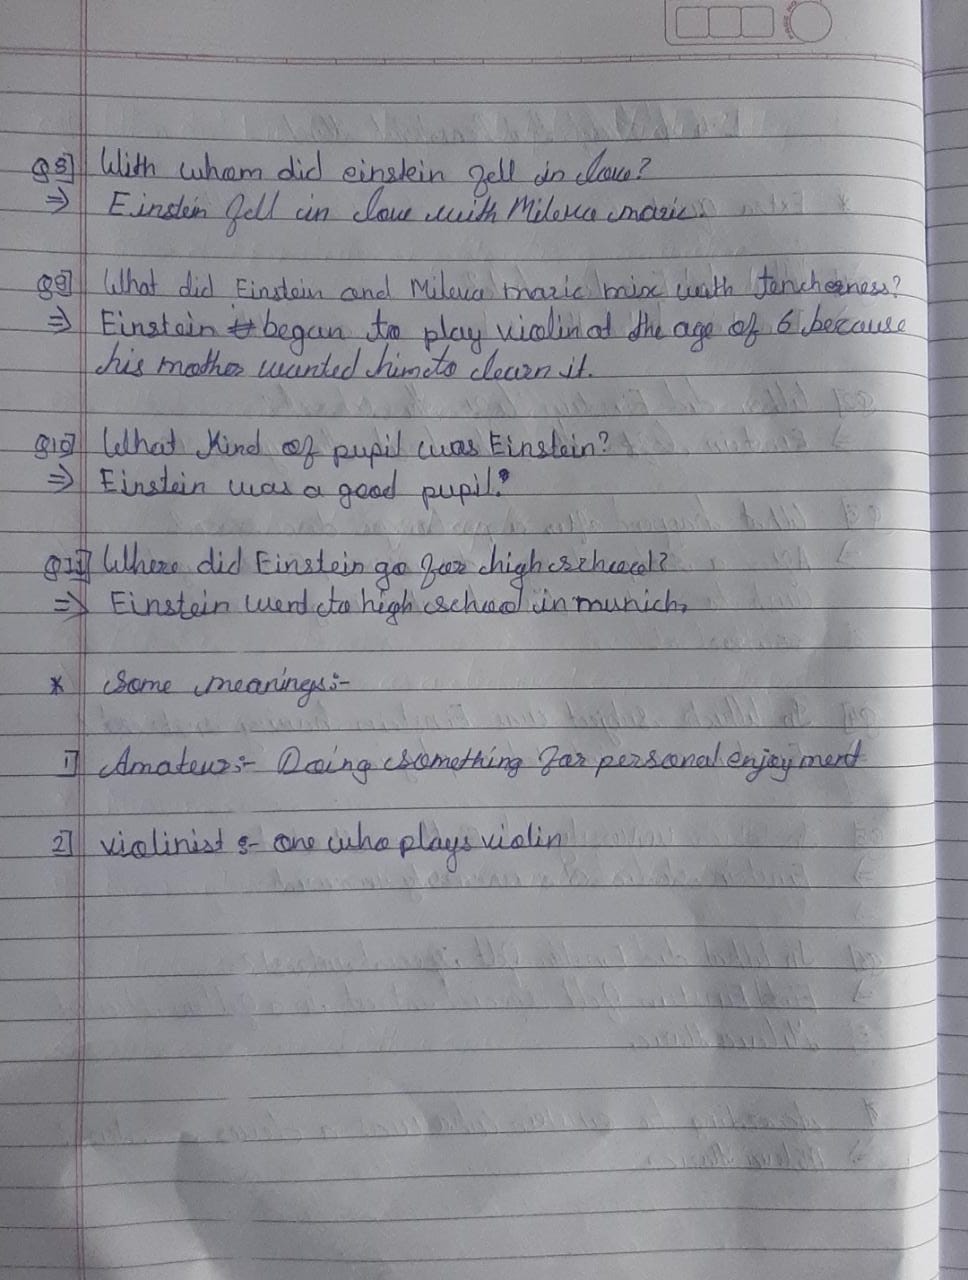 Q8] With whom did einstein fell in love?
⇒ Einstein fell in love with Mileva maric.
Q9] What did Einstein and Mileva maric mix with
⇒ Einstein began to play violin at the age of 6 because
his mother wanted him to learn it.
Q10] What Kind of pupil was Einstein?
⇒ Einstein was a good pupil.
Q11] Where did Einstein go for high school?
⇒ Einstein went to high school in munich.
* Some meanings:-
1] Amateur:- Doing something for personal enjoyment
2] violinist :- one who plays violin